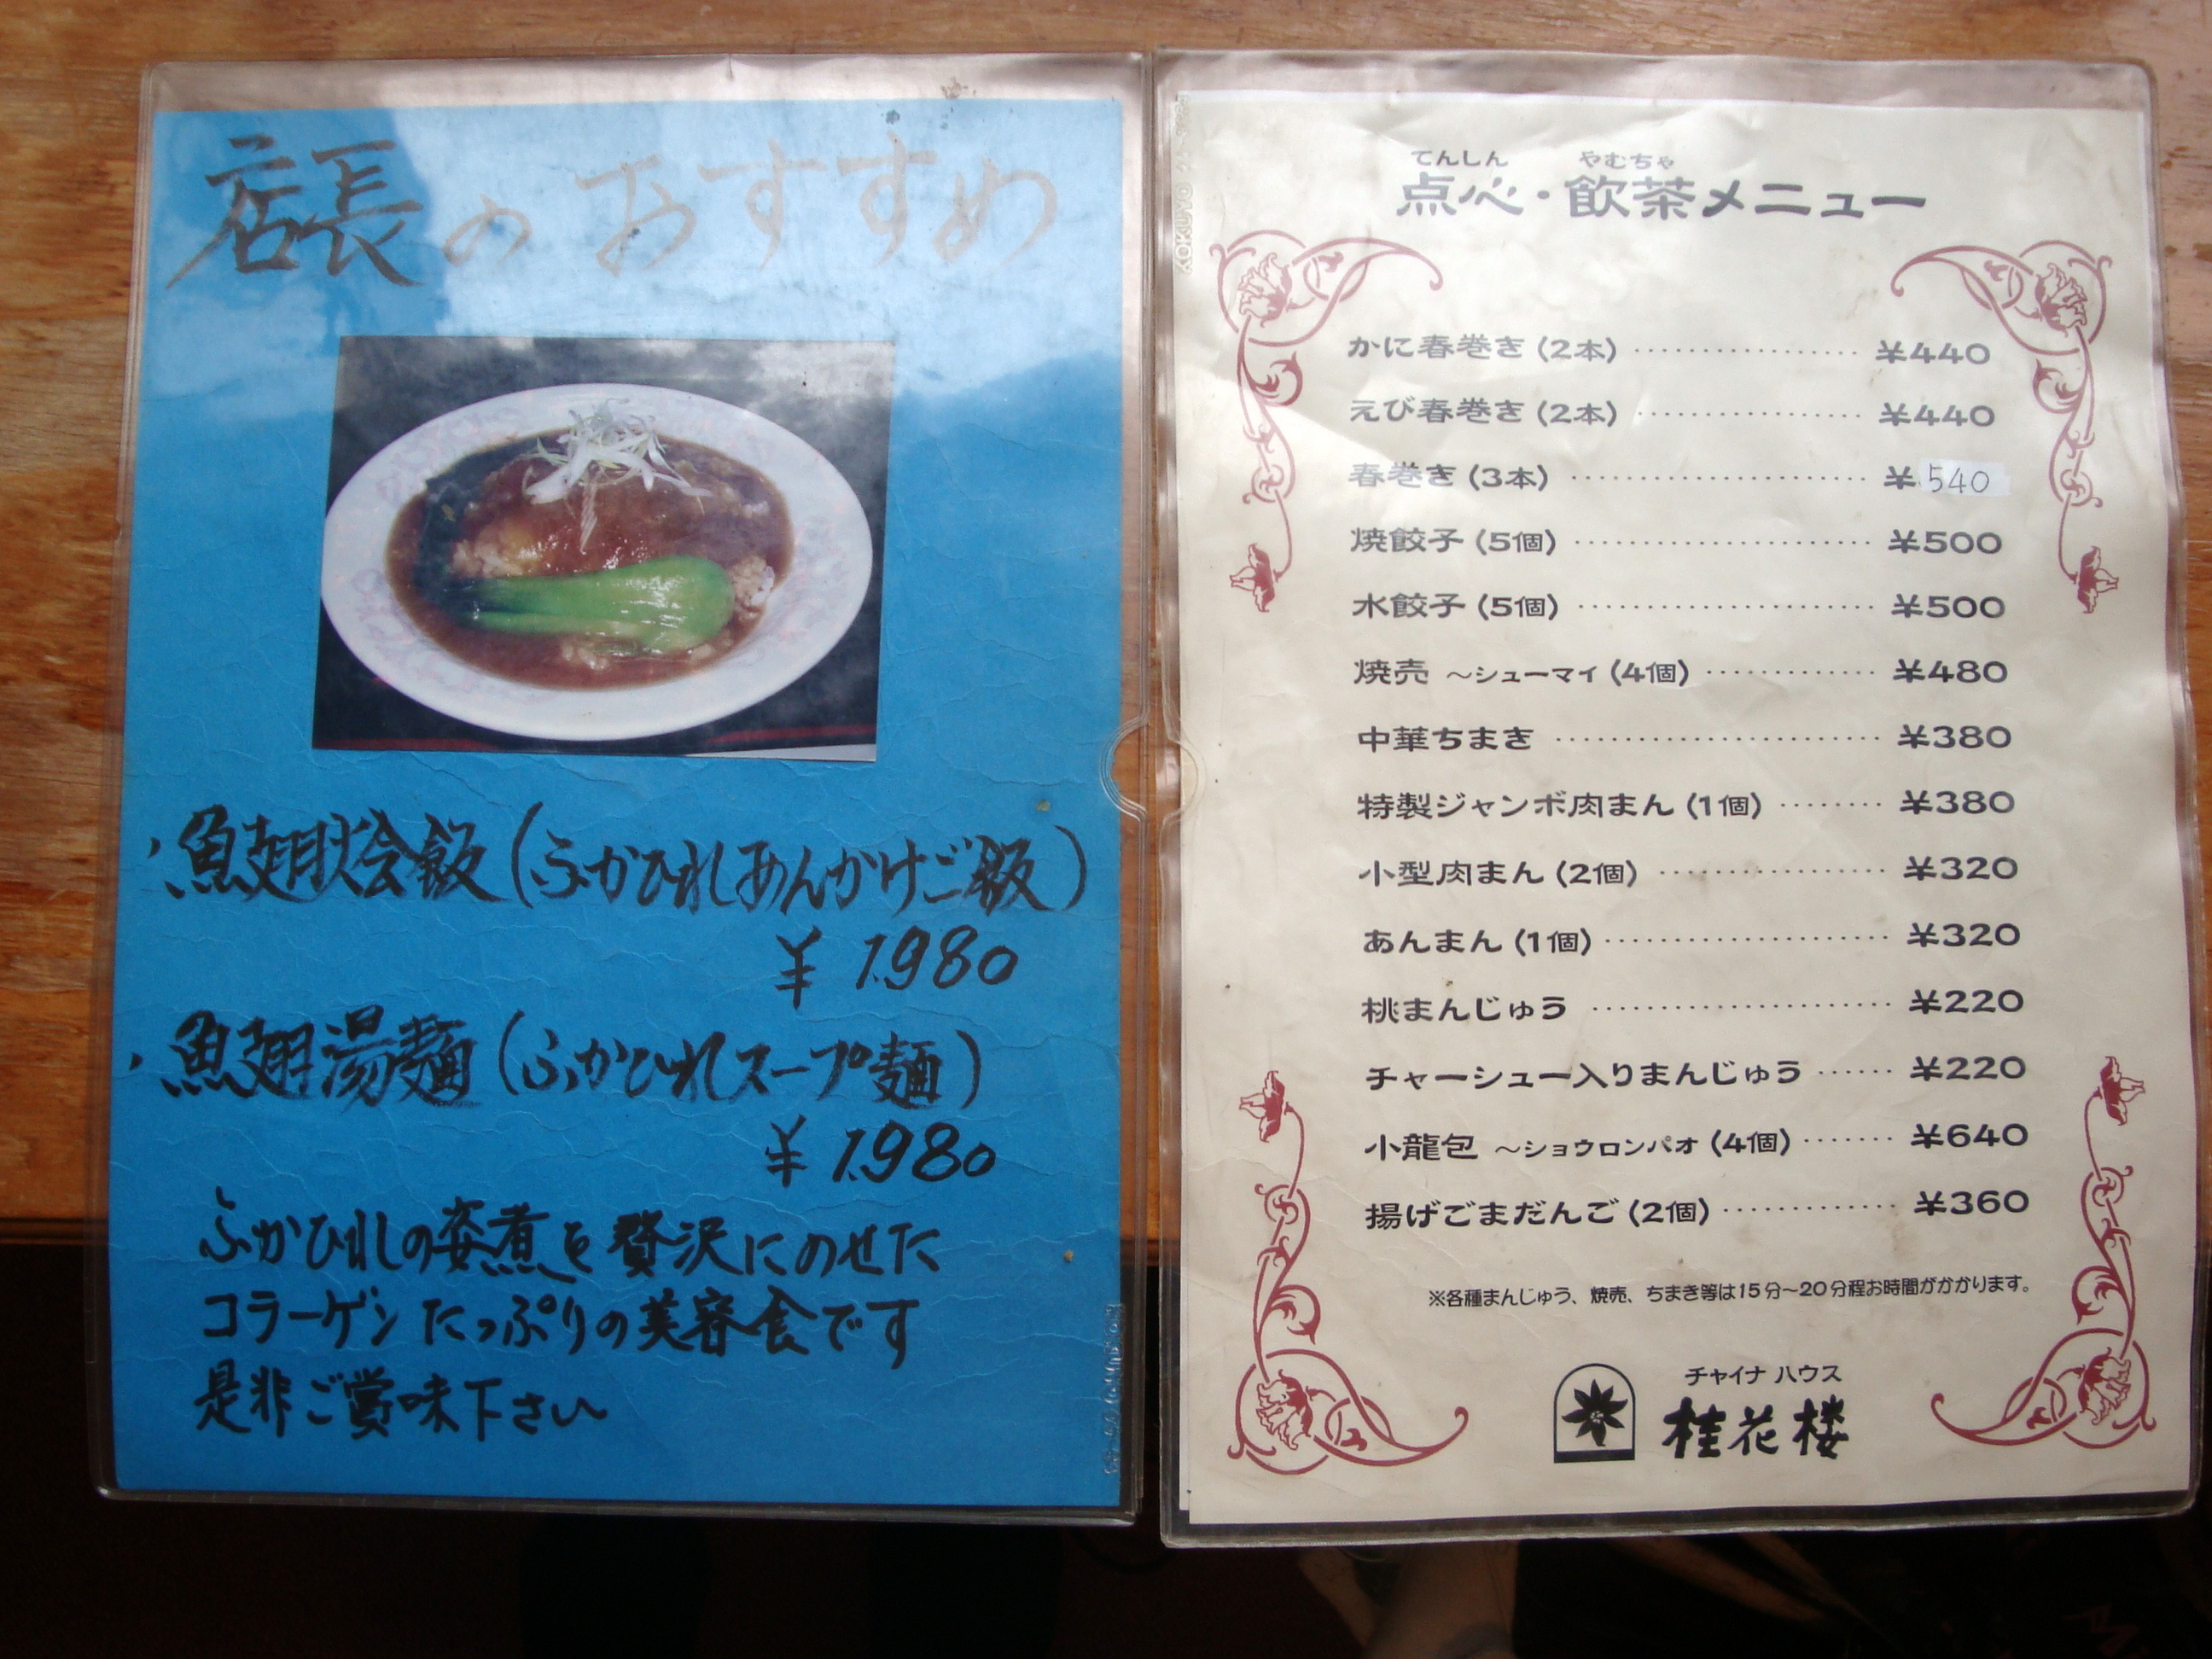 店長のおすすめ
・魚翅烩飯(ふかひれあんかけご飯)
¥1.980
・魚翅湯麺(ふかひれスープ麺)
¥1.980
ふかひれの姿煮を贅沢にのせた
コラーゲンたっぷりの美容食です
是非ご賞味下さい
てんしん やむちゃ
点心・飲茶メニュー
かに春巻き(2本) ¥440
えび春巻き(2本) ¥440
春巻き(3本) ¥540
焼餃子(5個) ¥500
水餃子(5個) ¥500
焼売 ～シューマイ(4個) ¥480
中華ちまき ¥380
特製ジャンボ肉まん(1個) ¥380
小型肉まん(2個) ¥320
あんまん(1個) ¥320
桃まんじゅう ¥220
チャーシュー入りまんじゅう ¥220
小龍包 ～ショウロンパオ(4個) ¥640
揚げごまだんご(2個) ¥360
※各種まんじゅう、焼売、ちまき等は15分～20分程お時間がかかります。
チャイナ ハウス
桂花楼